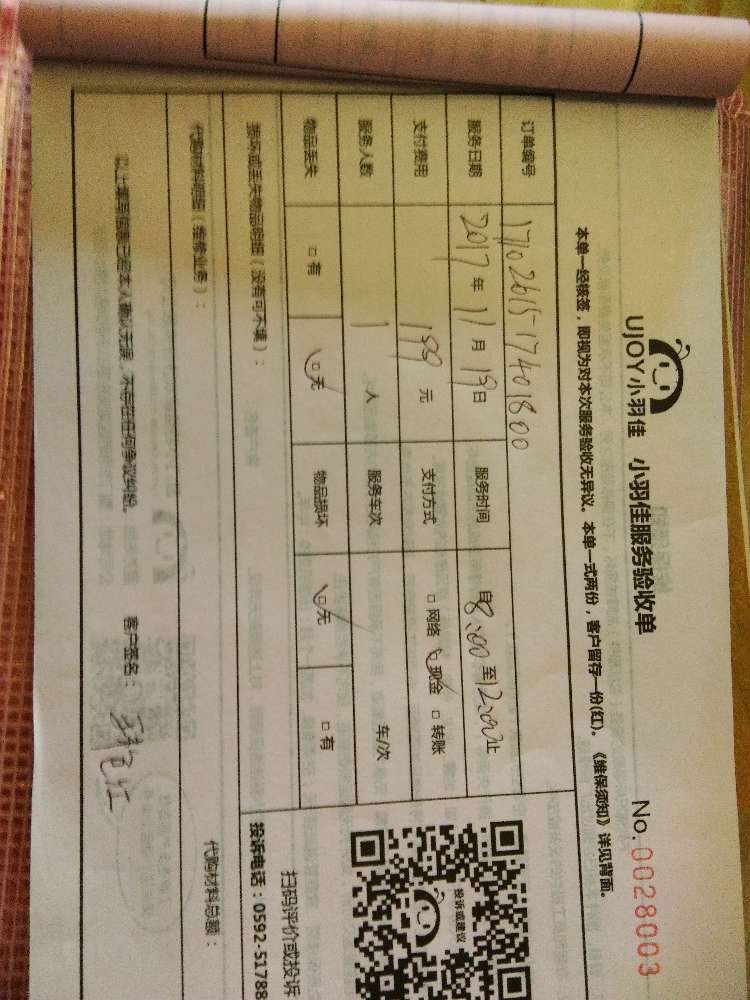 UJOY小羽佳 小羽佳服务验收单 No.0028003
本单一经核签，即视为对本次服务验收无异议。本单一式两份，客户留存一份(红)。《维保须知》详见背面。
订单编号 171026151-17401800
服务日期 2017年11月19日 服务时间 自8:00至12:00止
支付费用 199元 支付方式 □网络 □现金 □转账
服务人数 1人 服务车次 车/次
物品丢失 □有 □无 物品损坏 □无 □有
损坏或丢失物品明细（没有可不填）：
投诉或建议
扫码评价或投诉
投诉电话：0592-51788
代购材料明细（维修业务）：
代购材料总额：
以上填写信息已经本人确认无误，不存在任何争议纠纷。 客户签名：